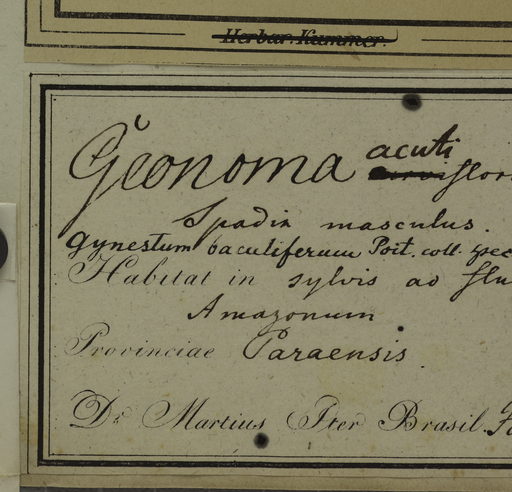 Herbar. Kummer.
Geonoma acuti
flor
Spadix masculus.
Gynestum baculiferum Poit. coll. spec
Habitat in sylvis ad flu
Amazonum
Provinciae Paraensis.
Dr. Martius Iter Brasil.